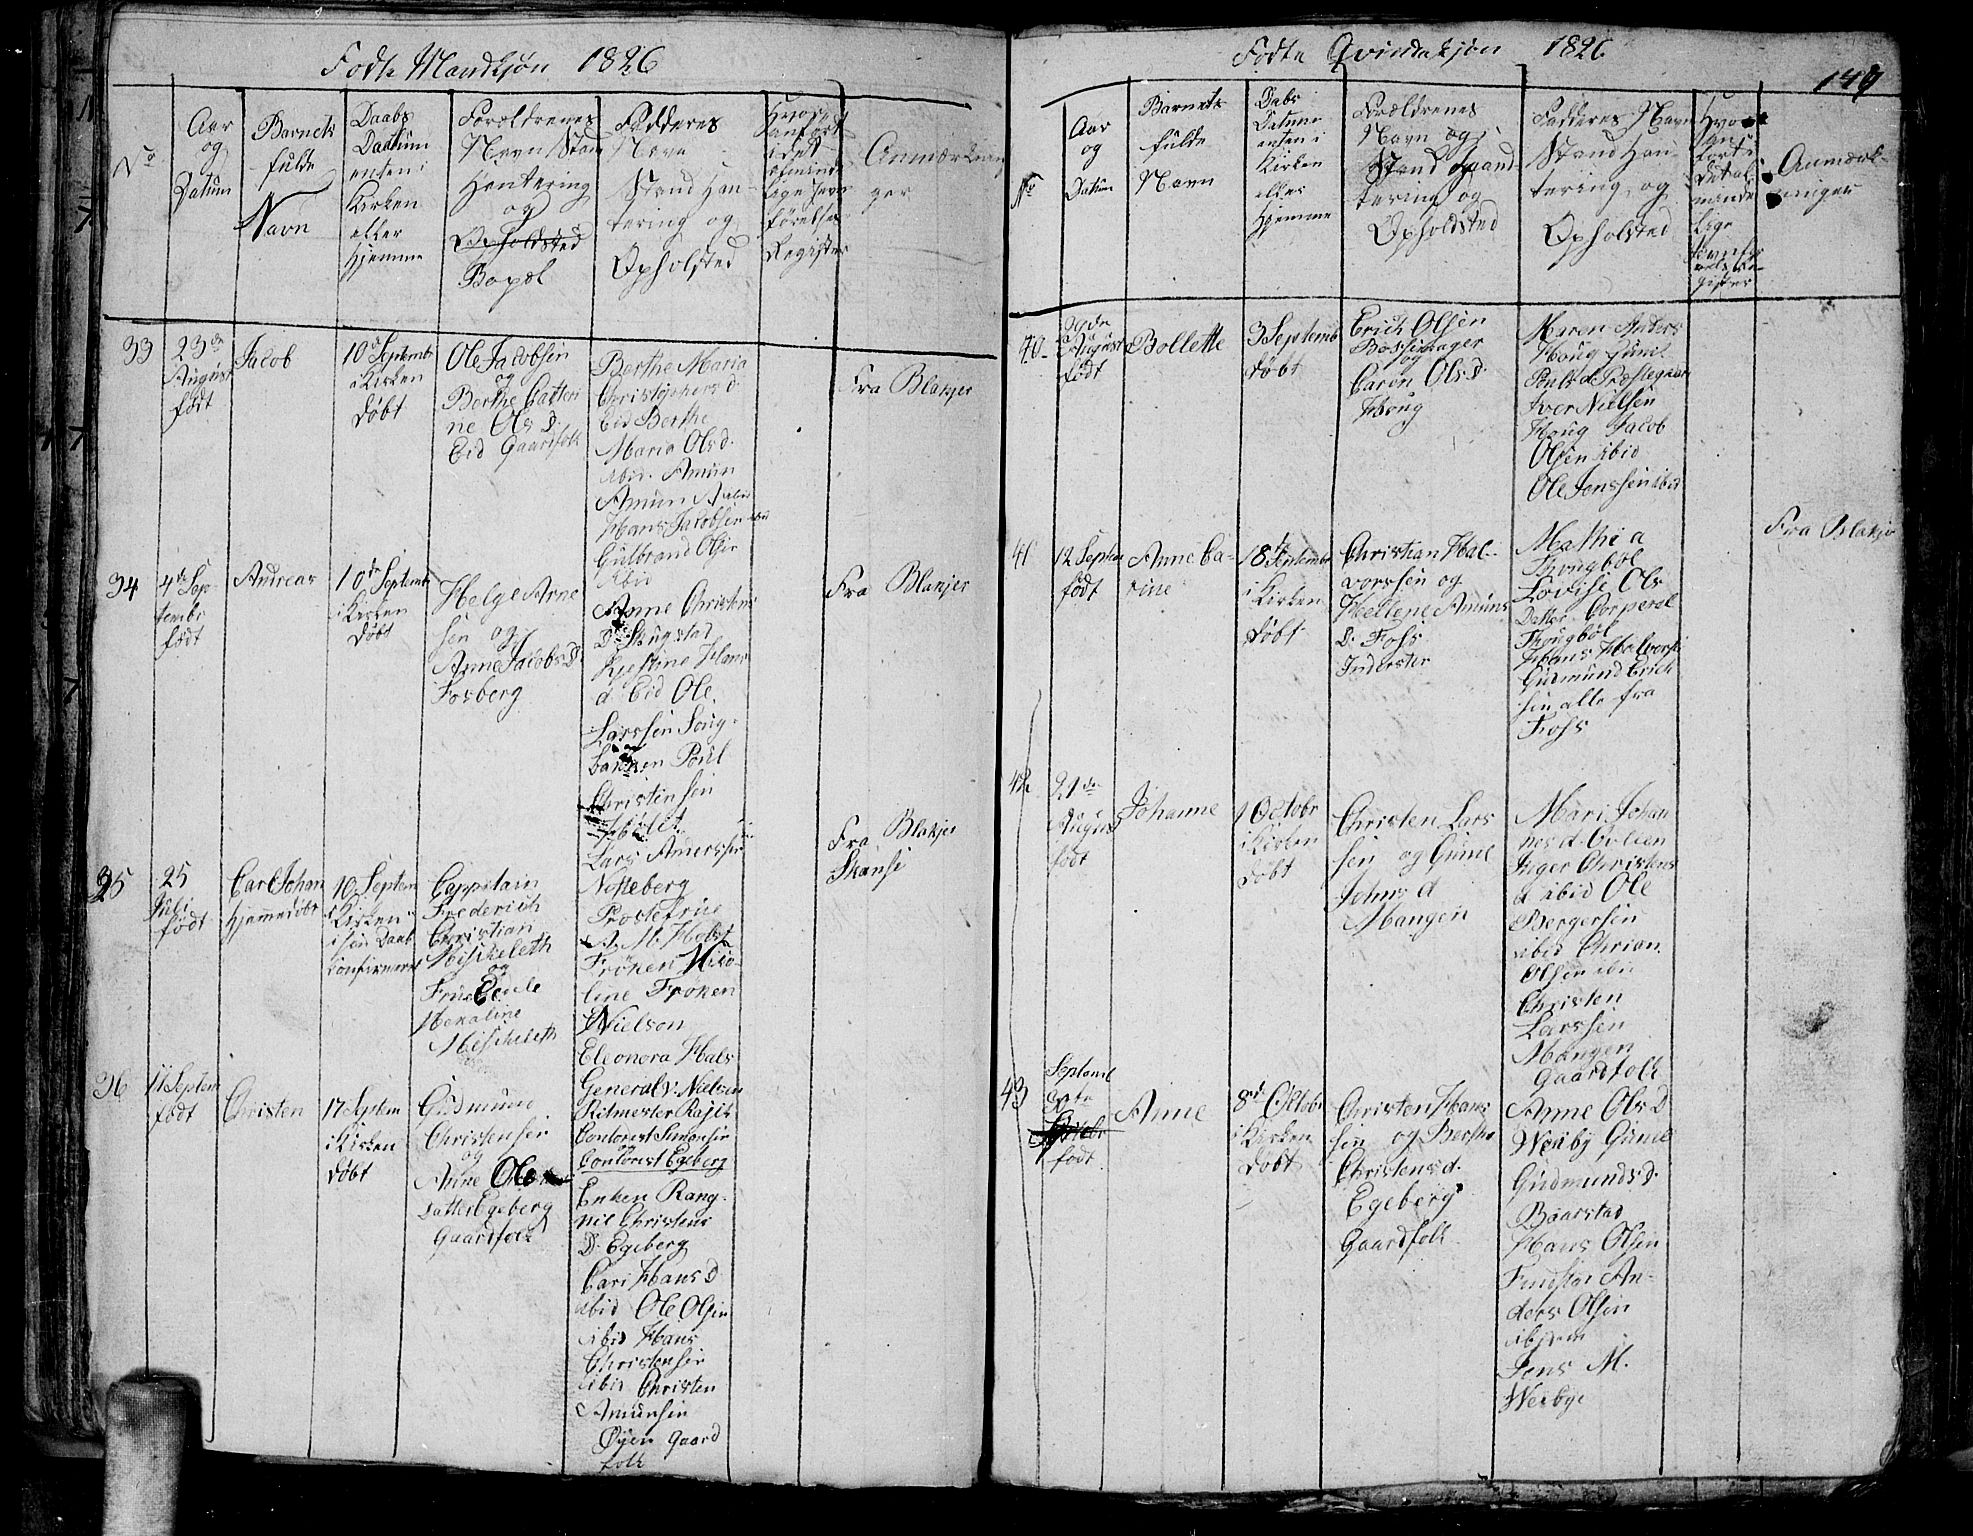 Fødte Mandkjøn 1826
No
Aar
og
Datum
Barnets
fulde
Navn
Daabs
Daatum
enten i
Kirken
eller
Hjemme
Forældrenes
Navn Stand
Hantering
og
Opholdsted
Bopæl
Fadderes
Navn
Stand Han-
tering og
Opholsted
Anmærknin
ger
33
23de
August
født
Jacob
10de Septembr
i Kirken
døbt
Ole Jacobsen
og
Berthe Catteri
ne Ols D.
Eid Gaardfolk
Berthe Maria
Christophers d.
Eid Berthe
Maria Ols d.
ibid. Amun
Amun
Hans Jacobsen
Gulbrand Olsen
ibid
Fra Blakjer
34
4de Sep
tembr
født
Andreas
10de Septembr
i Kirken
døbt
Helge Arne
sen og
Anne Jacobs D.
Fosberg
Anne Christens
D. Skugstad
Kjestine Hans
d Eid Ole
Larssen Soug-
bakken Poul
Christensen
Lars Amerssen
Fra Blakjer
35
25
Juli
født
Carl Johan
Hjemmedøbt
10 Septem
i Kirken
i sin Daab
Confirmeret
Cappitain
Frederich
Christian
Mischeleth
og
Frue
Mischeleth
Noseberg
Prostefrue
A. M. Holst
Frøken Nico-
line Frøken
Nielson
Eleonora Hals
General v. Nielsen
Ritmester
Contorist Simonsen
Contorist Egeberg
Fra Blakjer
Skanse
36
11 Septem
født
Christen
17 Septem
i Kirken
døbt
Gudmund
Christensen
og
Anne Ole
datter Egeberg
Gaardfolk
Enken Rang-
nil Christens
D. Egeberg
Cari Hans D
ibid Ole Olsen
ibid Hans
Christensen
ibid Christen
Amunsen
Øyen Gaard
folk
Fødte Qvindekjøn 1826
149
No
Aar
og
Datum
Barnets
fulde
Navn
Dabs
Datum
enten i
Kirken
eller
Hjemme
Forældrenes
Navn og
Stand og Hand-
tering og
Opholdsted
Fadderes Navn
Stand Han-
tering og
Opholsted
Anmærk-
ninger
40
August
født
Bollette
3 Septemb
døbt
Erich Olsen
og
Caren Ols D.
Houg
Maren Anders
Houg Gunil
Pouls d Præstegaar
Iver Nielsen
Houg Jacob
Olsen ibid
Ole Jenssen ibid
41
12 Septem
født
Anne Ca-
rine
18de Septembr
i Kirken
døbt
Christian Hal-
vorssen og
Hellene Amuns
D. Foss
Inderster
Mathia
Thongbøl
Lovise Ols
Datter Corperal
Thougbøl
Hans Halvors
Gudmund Erich
sen alle fra
Foss
Fra Blakjer
42
21de
August
født
Johanne
1 Octobr
i Kirken
døbt
Christen Lars
sen og Gunil
Johns d
Mangen
Mari Johan
nes d.
Inger Christens
d ibid Ole
Bergersen
ibid Chrian
Olsen ibi
Christen
Larssen
Mangen
Gaardfolk
43
Septembr
født
Anne
8de Octobr
i Kirken
døbt
Christen Hans
sen og Berthe
Christens d.
Egeberg
Gaardfolk
Anne Ols D
Werby Gunil
Gudmunds D.
Baarstad
Hans Olsen
An-
ders Olsen
Jens M.
Werbye